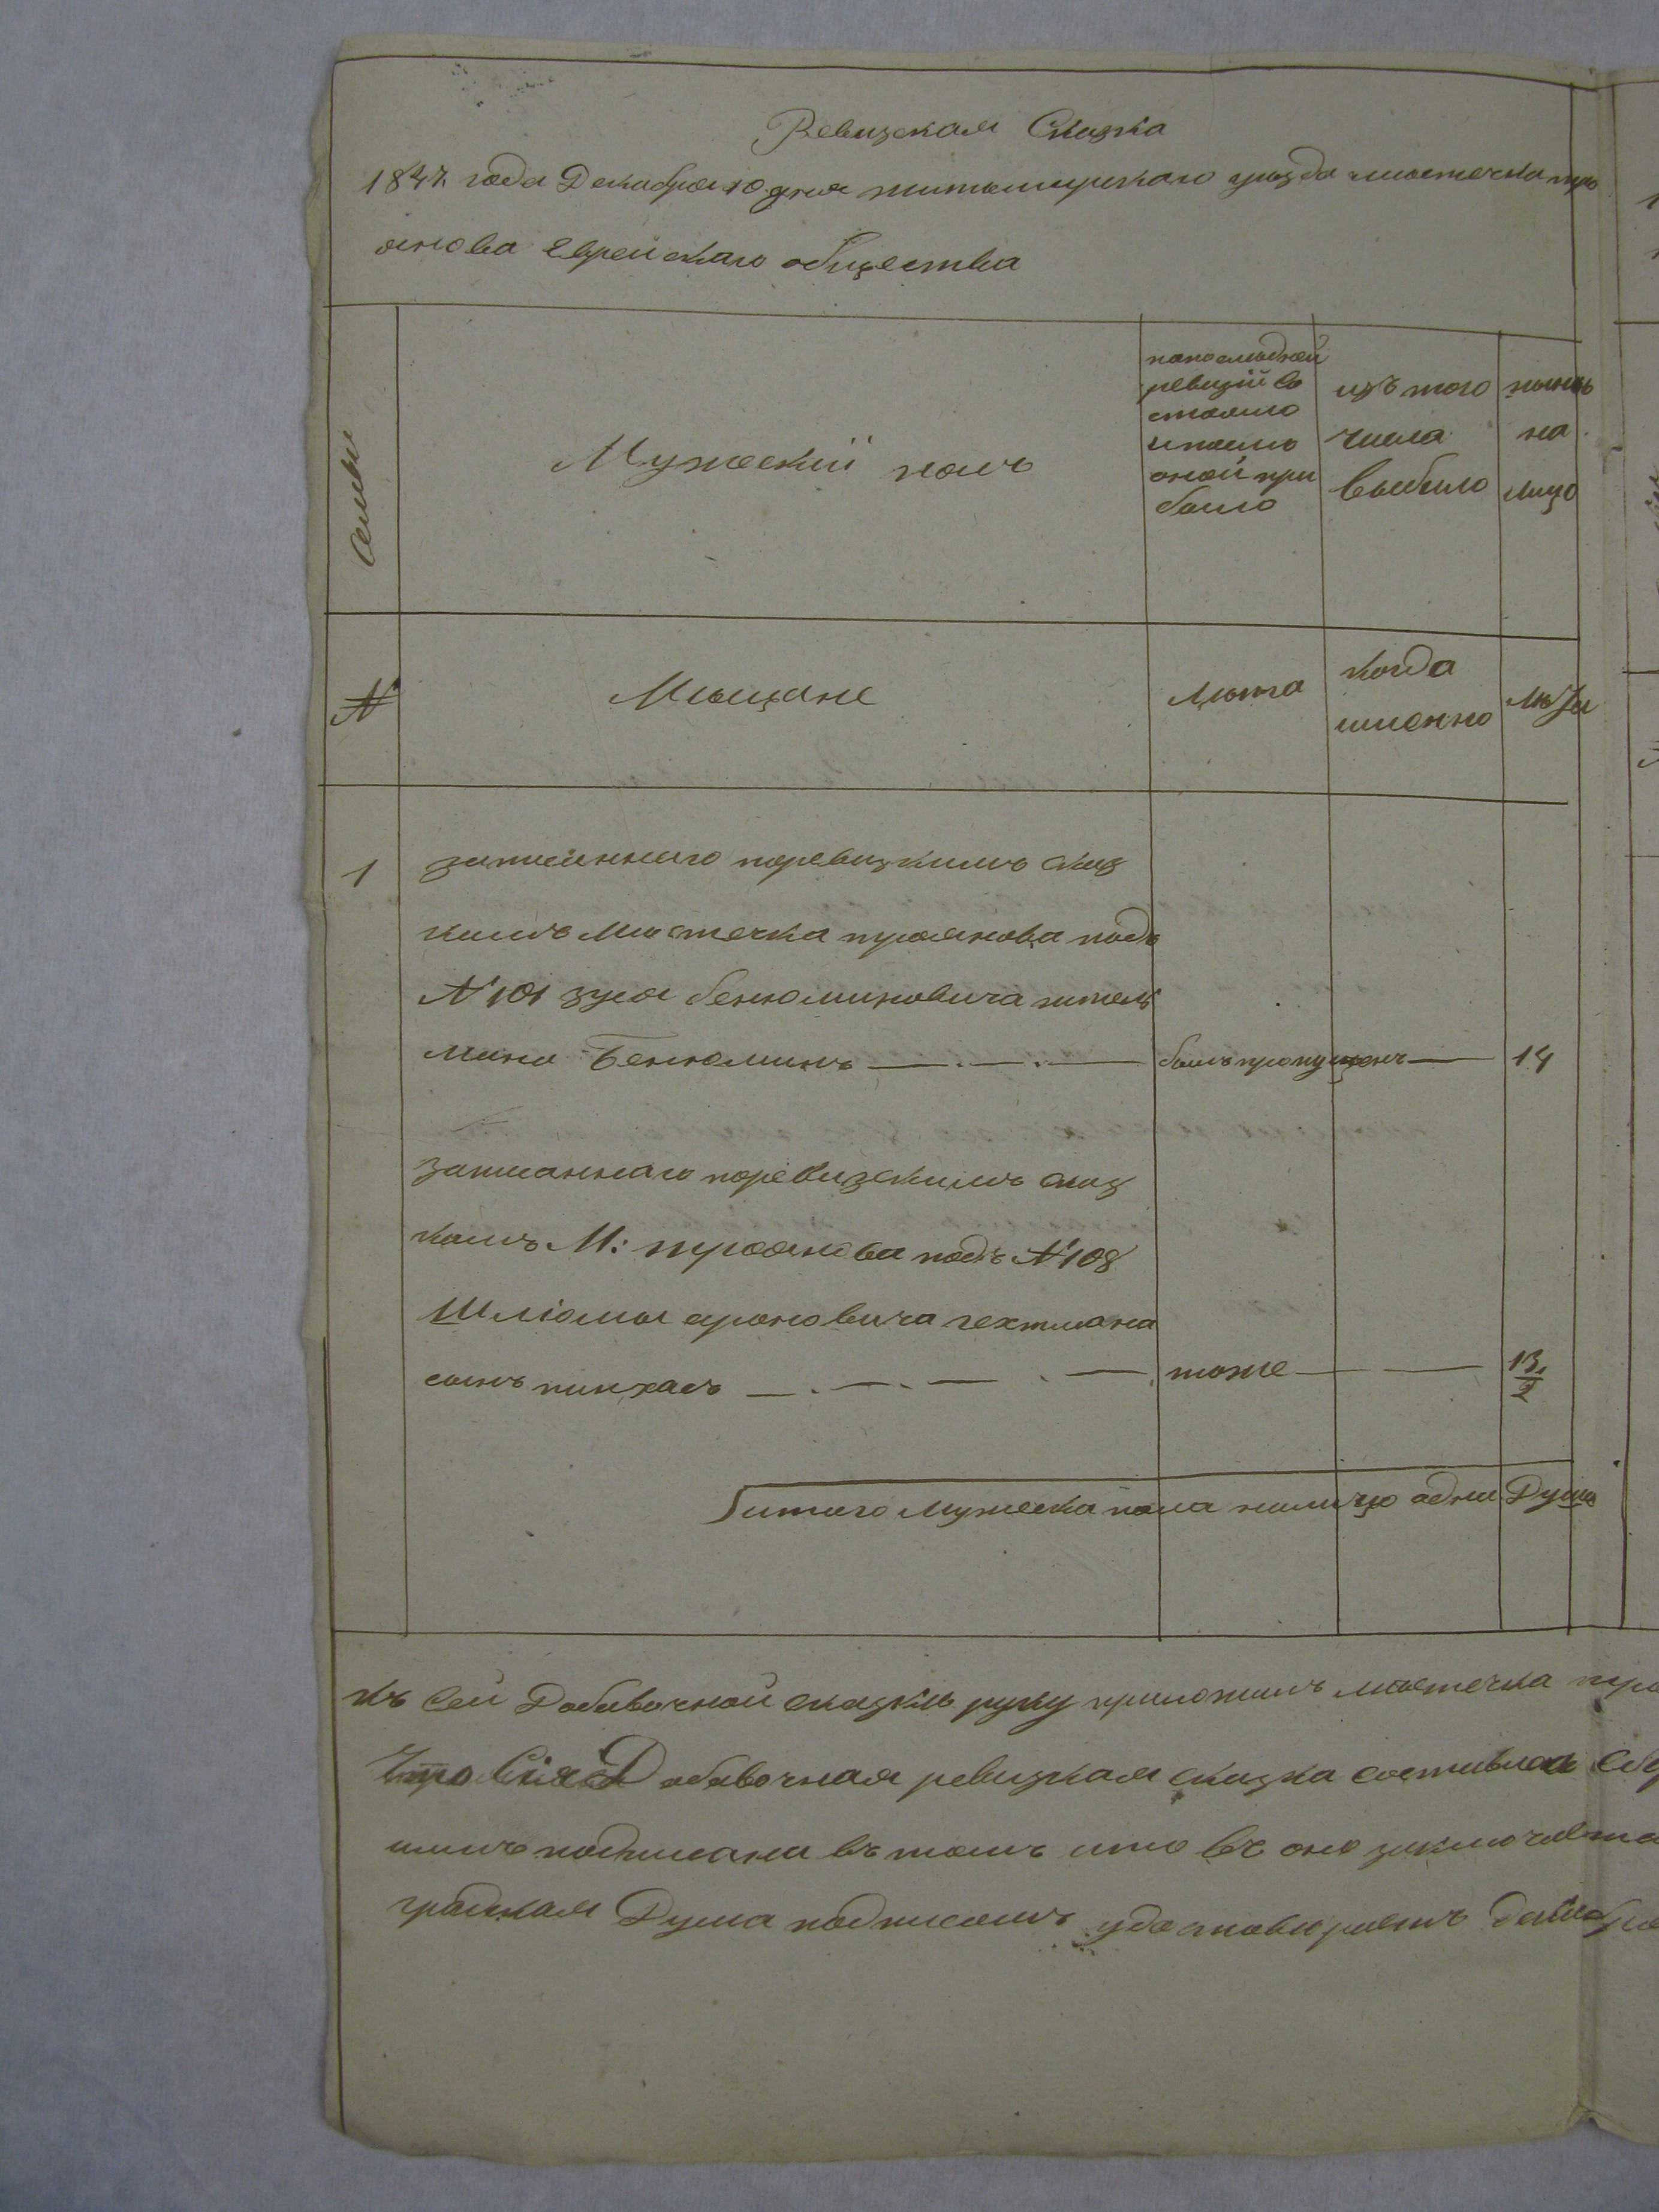 Ревизская Сказка
1847 года Декабря 10 дня житомирскаго уезда местечка тро
янова Еврейскаго общества
семьи
Мужеский полъ
попоследней
ревизіи со
стояло
и после
оной при
было
изъ того
числа
выбыло
ныне
на
лицо
№
Мещане
Лета
когда
именно
Лета
1 записаннаго поревизкимъ сказ
камъ местечка троянова подъ
№ 101 зуся бенюминовича
Бенюминъ — . — . — былъ пропущенъ — 14
записаннаго поревизскимъ сказ
камъ М: троянова подъ № 108
Шліомы ароновича гехтмана
сынъ пинхасъ — . — . — . — тоже — — 13/2
итого Мужеска пола налицо одна Душа
къ сей Добавочной сказкѣ руку приложилъ местечка тро
Что Сія Добавочная ревизкая сказка составлена
подписана въ томъ что въ оно
градская Дума подписомъ удостовѣряетъ декабря